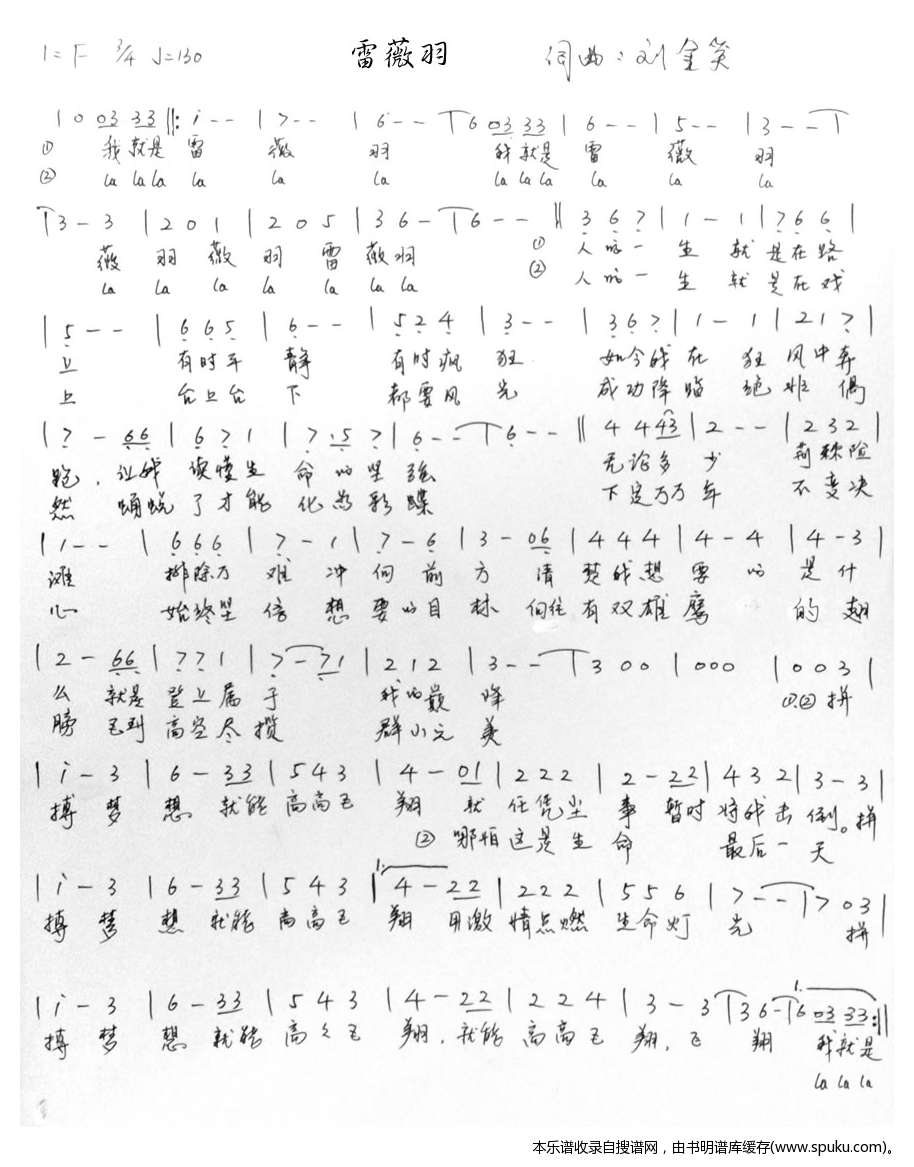 1=F 3/4 ♩=130 雷薇羽 词曲:刘金笑
| 0 03 33 ‖: i - - | 7 - - | 6 - - | 6 03 33 | 6 - - | 5 - - | 3 - - |
① 我就是 雷 薇 羽 我就是 雷 薇 羽
② la la la la la la la la la la la la
| 3 - 3 | 2 0 1 | 2 0 5 | 3 6 - | 6 - - ‖ 3 6 7 | 1 - 1 | 7 6 6 |
薇 羽 薇 羽 雷 薇羽 ① 人的一 生 就 是在路
la la la la la la la ② 人的一 生 就 是在戏
| 5 - - | 6 6 5 | 6 - - | 5 2 4 | 3 - - | 3 6 7 | 1 - 1 | 2 1 7 |
上 有时平 静 有时疯 狂 如今我 在 狂 风中奔
上 台上台 下 都要风 光 成功降临 绝 非 偶
| 7 - 66 | 6 7 1 | 7 .5 7 | 6 - - | 6 - - ‖ 4 4 43 | 2 - - | 2 3 2 |
跑,让我 读懂生 命的坚 强 无论多 少 荆棘险
然 蛹蜕 了才能 化为彩 蝶 下定万万 年 不变决
| 1 - - | 6 6 6 | 7 - 1 | 7 - 6 | 3 - 06 | 4 4 4 | 4 - 4 | 4 - 3 |
滩 排除万 难 冲 向 前 方 清 楚我想 要 的 是 什
心 始终坚 信 想 要的目 标 向往 有双雄 鹰 的 翅
| 2 - 66 | 7 7 1 | 7 - 71 | 2 1 2 | 3 - - | 3 0 0 | 0 0 0 | 0 0 3 |
么 就是 登上属 于 我的巅 峰 ①.② 拼
膀 飞到 高空尽 揽 群小元 美
| i - 3 | 6 - 33 | 5 4 3 | 4 - 01 | 2 2 2 | 2 - 22 | 4 3 2 | 3 - 3 |
搏 梦 想 就能 高高飞 翔 就 任凭尘 事 暂时 将我击 倒。拼
② 哪怕 这是生 命 最后一 天
| i - 3 | 6 - 33 | 5 4 3 | 1. 4 - 22 | 2 2 2 | 5 5 6 | 7 - - | 7 0 3 |
搏 梦 想 就能 高高飞 翔 用激 情点燃 生命灯 光 拼
| i - 3 | 6 - 33 | 5 4 3 | 4 - 22 | 2 2 4 | 3 - 3 | 3 6 - | 1. 6 03 33 :‖
搏 梦 想 就能 高々飞 翔,就能 高高飞 翔,飞 翔 我就是
la la la
本乐谱收录自搜谱网,由书明谱库缓存(www.spuku.com)。